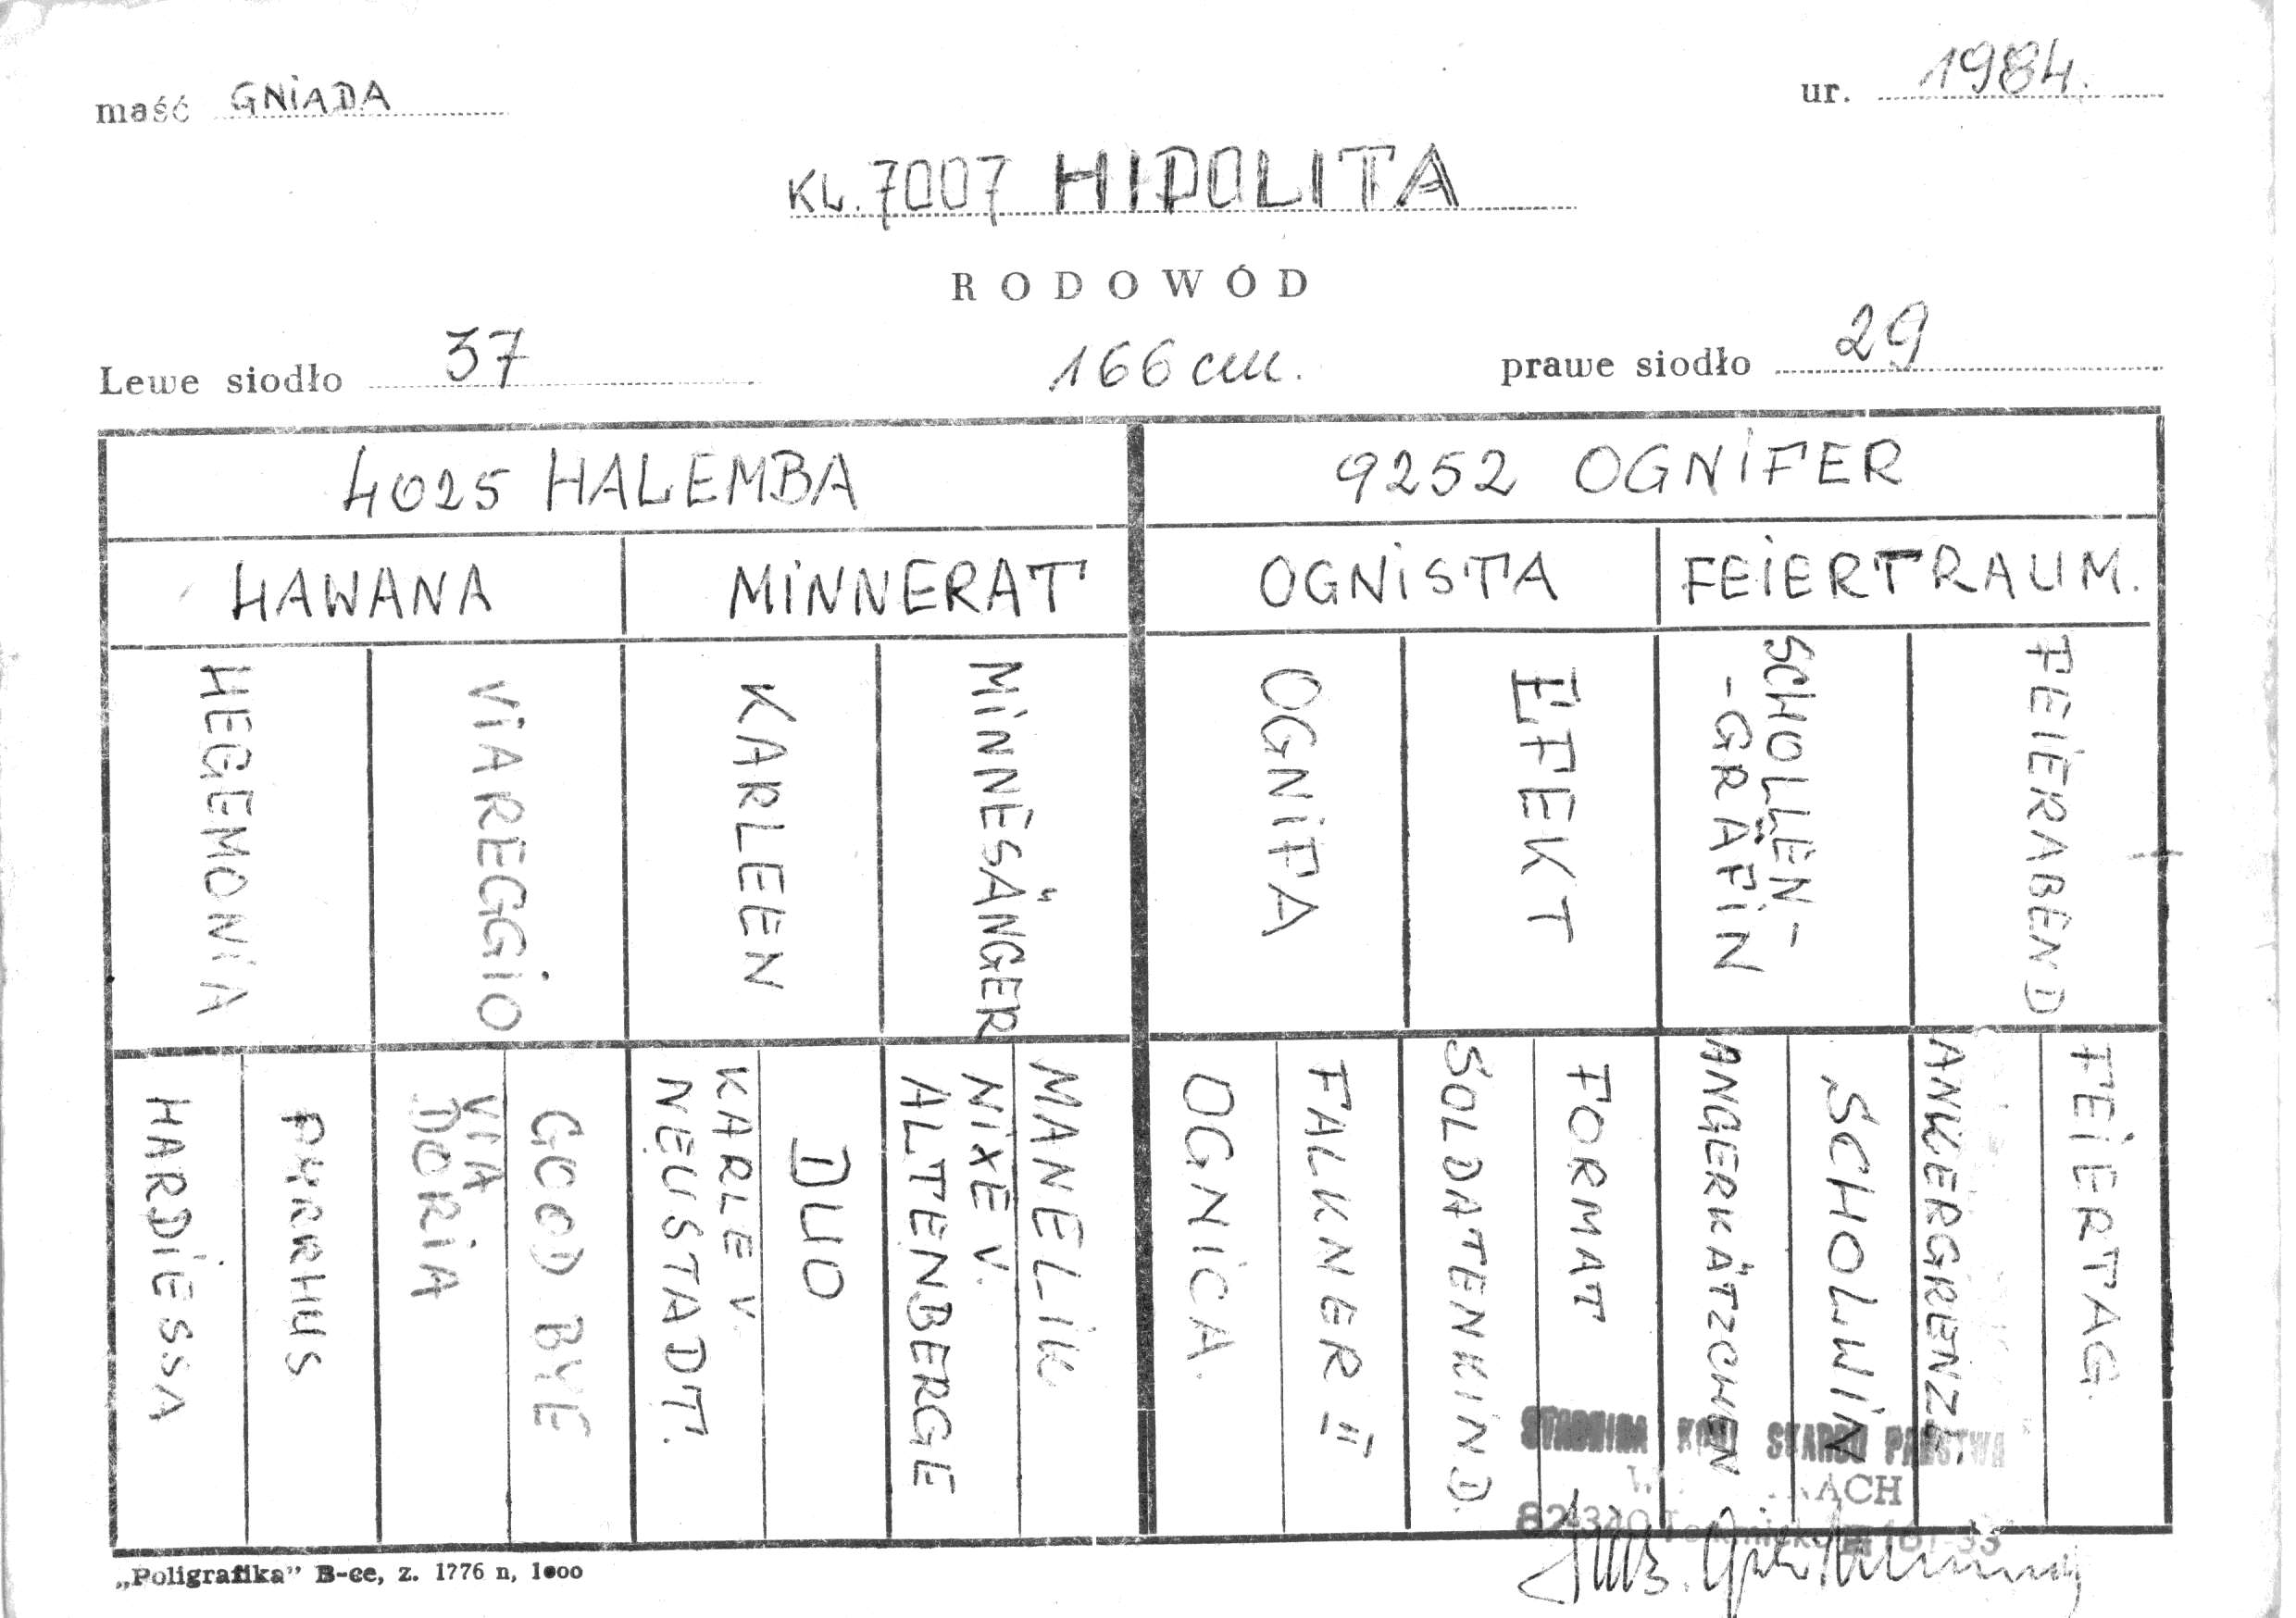 maść GNIADA
ur. 1984.
KL. 7007 HIPOLITA
RODOWÓD
Lewe siodło 37
166 cm.
prawe siodło 29
4025 HALEMBA
9252 OGNIFER
HAWANA
MINNERAT
OGNISTA
FEIERTRAUM.
HEGEMONIA
VIAREGGIO
KARLEEN
MINNESÄNGER
OGNIFA
EFEKT
SCHOLLEN-
-GRÄFIN
FEIERABEND
HARDIESSA
PYRRHUS
VIA
DORIA
GOOD BYE
KARLE V.
NEUSTADT.
DUO
NIXE V.
ALTENBERGE
MANELIK
OGNICA.
FALKNER II
SOLDATENKIND.
FORMAT
ANGERKÄTZCHEN
SCHOLWIN
ANKERGRENZE.
FEIERTAG.
STADNINA KONI SKARBU PAŃSTWA
ACH
„Poligrafika” B-ce, z. 1776 n, 1000